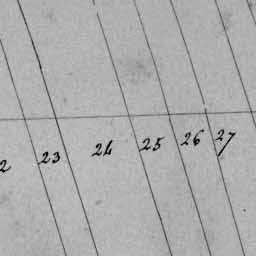 2 23 24 25 26 27